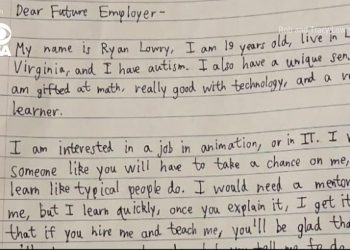 Dear Future Employer-
My name is Ryan Lowry, I am 19 years old, live in L
Virginia, and I have autism. I also have a unique sen
am gifted at math, really good with technology, and a
learner.
I am interested in a job in animation, or in IT. I
someone like you will have to take a chance on me,
learn like typical people do. I would need a mentor
me, but I learn quickly, once you explain it, I get it
that if you hire me and teach me, you'll be glad tha